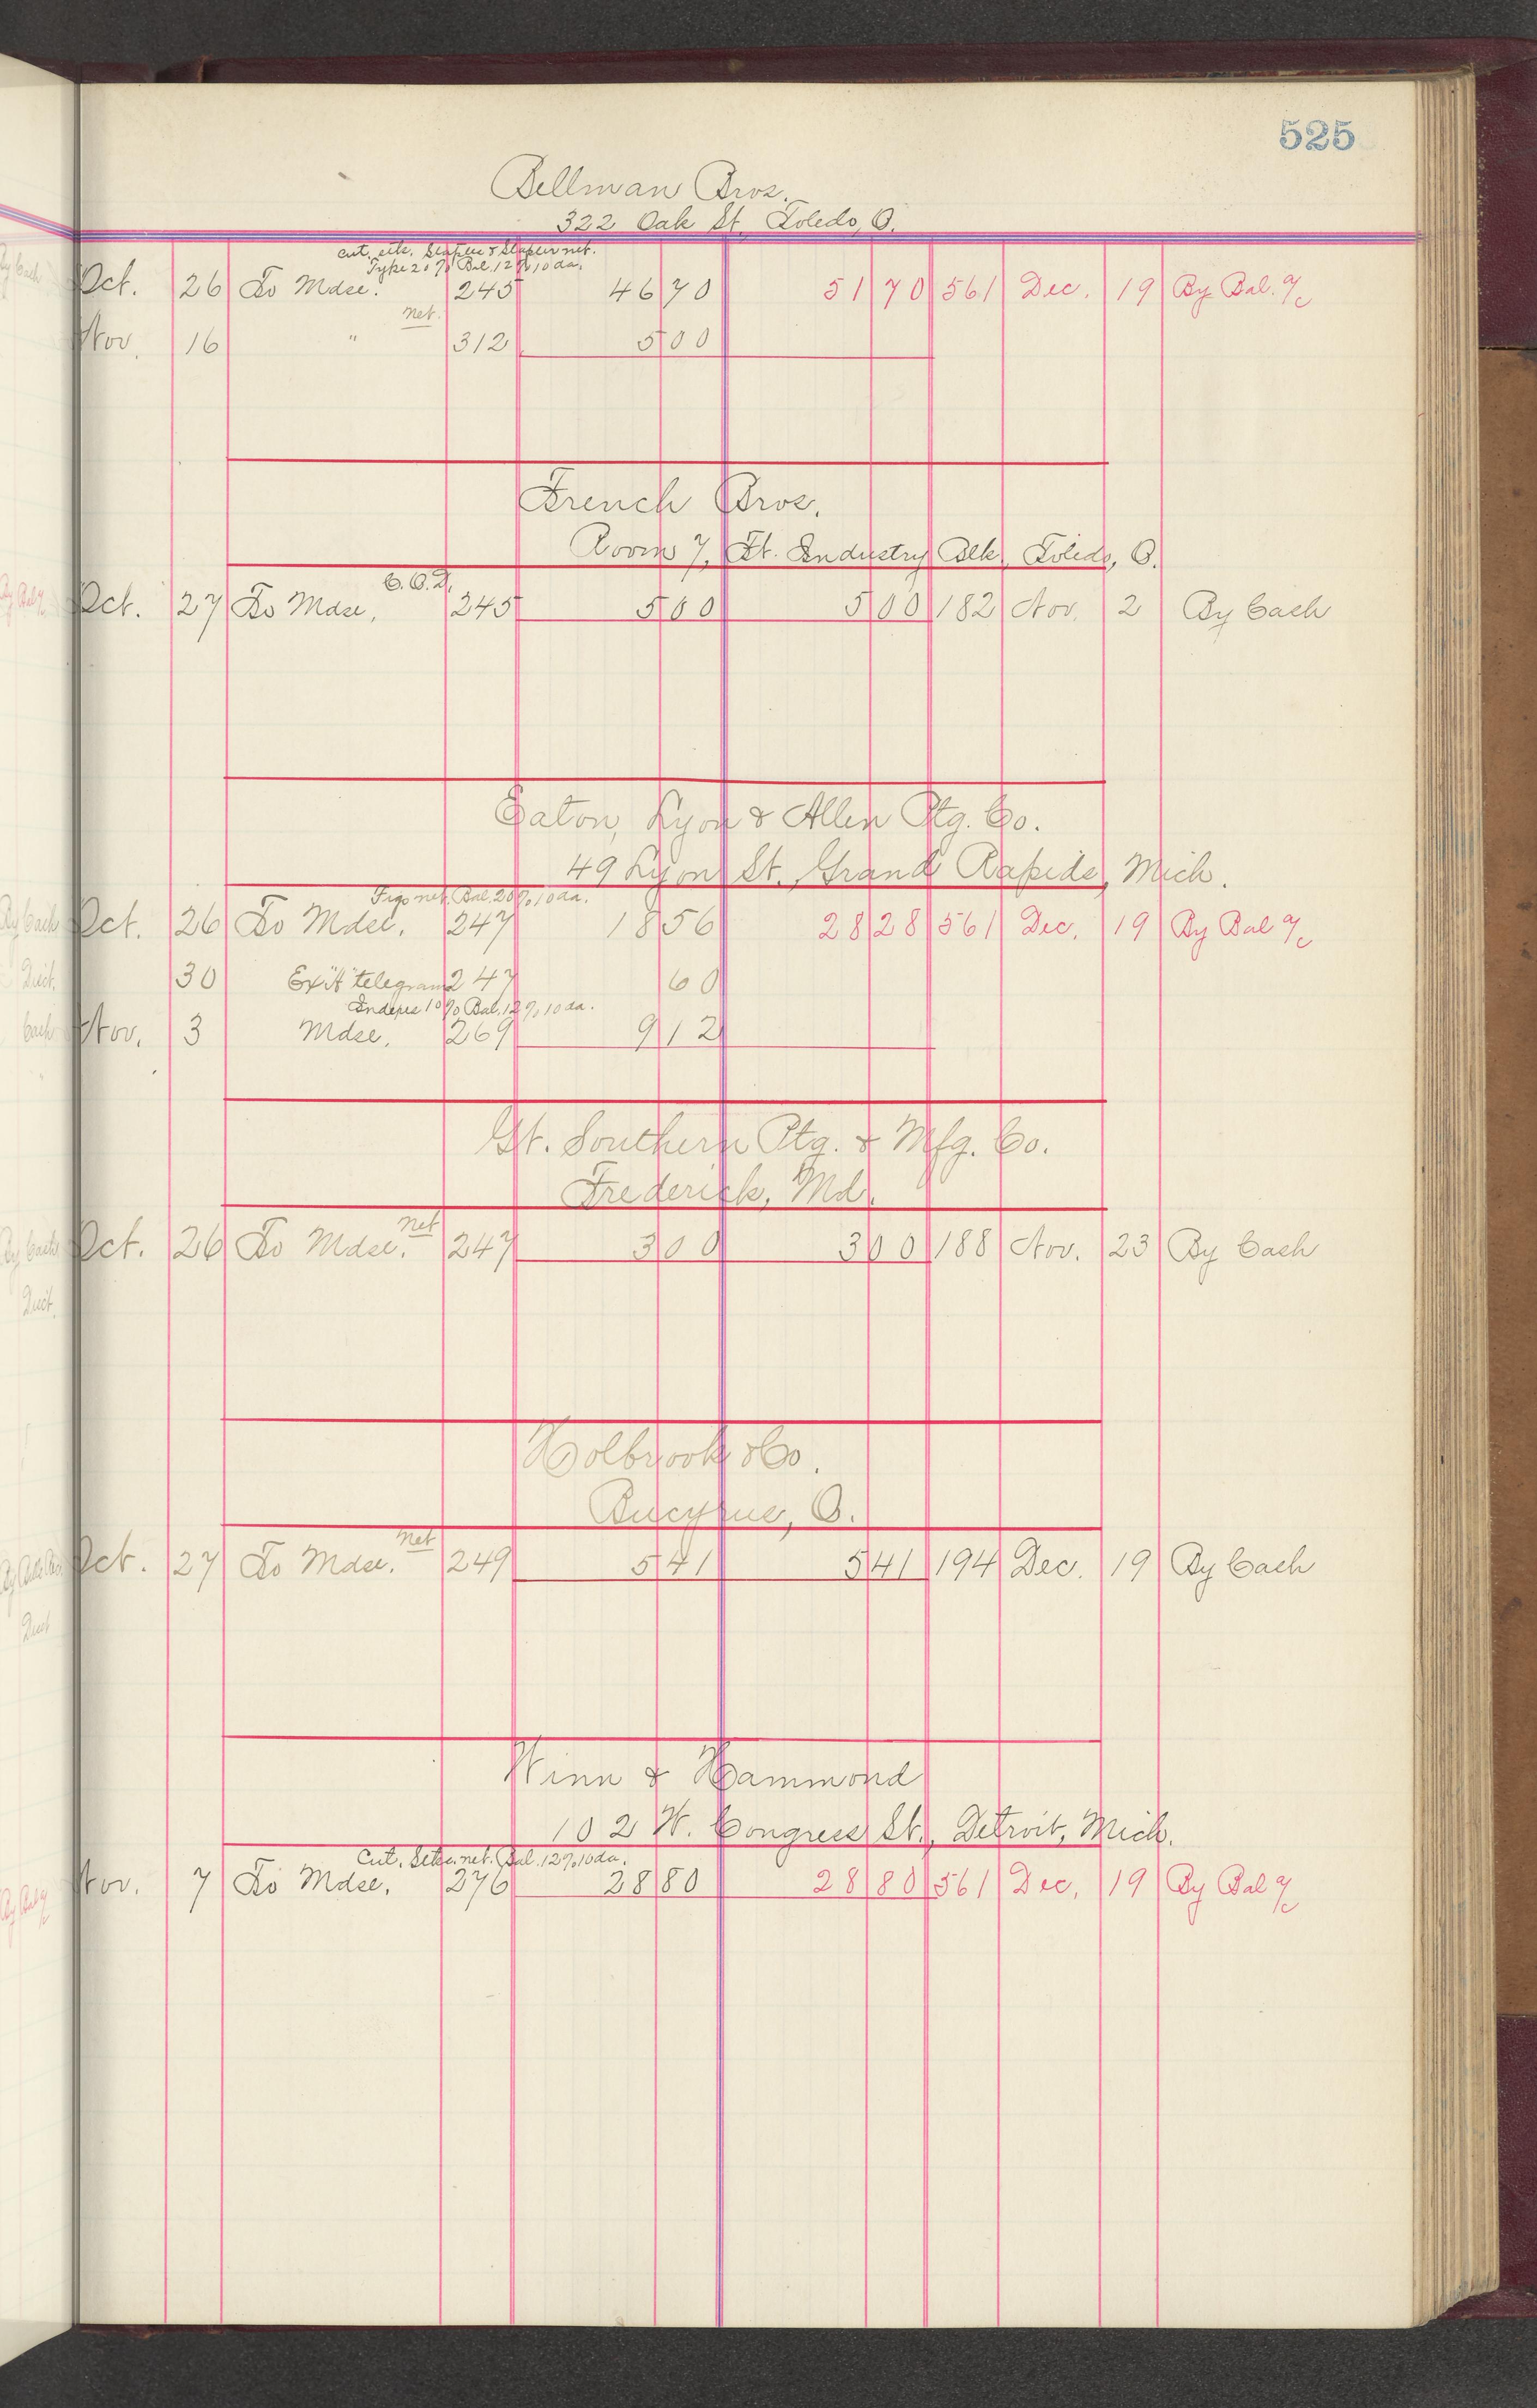 525
Bellman Bros.
322 Oak St. Toledo, O.
Type 20% Bal. 12% 10 da.
Oct. 26 To Mdse. 245 46 70 51 70 561 Dec. 19 By Bal. a/c
net.
Nov. 16 " 312 5 00
French Bros.
Room 7, Ft. Industry Blk, Toledo, O.
C.O.D.
Oct. 27 To Mdse, 245 5 00 5 00 182 Nov. 2 By Cash
Eaton, Lyon & Allen Ptg. Co.
49 Lyon St., Grand Rapids, Mich.
Figs net. Bal. 20% 10 da.
Oct. 26 To Mdse. 247 18 56 28 28 561 Dec. 19 By Bal a/c
30 telegram 247 60
10% Bal. 12% 10 da.
Nov. 3 Mdse. 269 9 12
Gt. Southern Ptg. & Mfg. Co.
Frederick, Md.
net
Oct. 26 To Mdse. 247 3 00 3 00 188 Nov. 23 By Cash
Holbrook & Co.
Bucyrus, O.
net
Oct. 27 To Mdse. 249 5 41 5 41 194 Dec. 19 By Cash
Winn & Hammond
102 W. Congress St., Detroit, Mich.
net. Bal. 12% 10 da.
Nov. 7 To Mdse. 276 28 80 28 80 561 Dec. 19 By Bal a/c